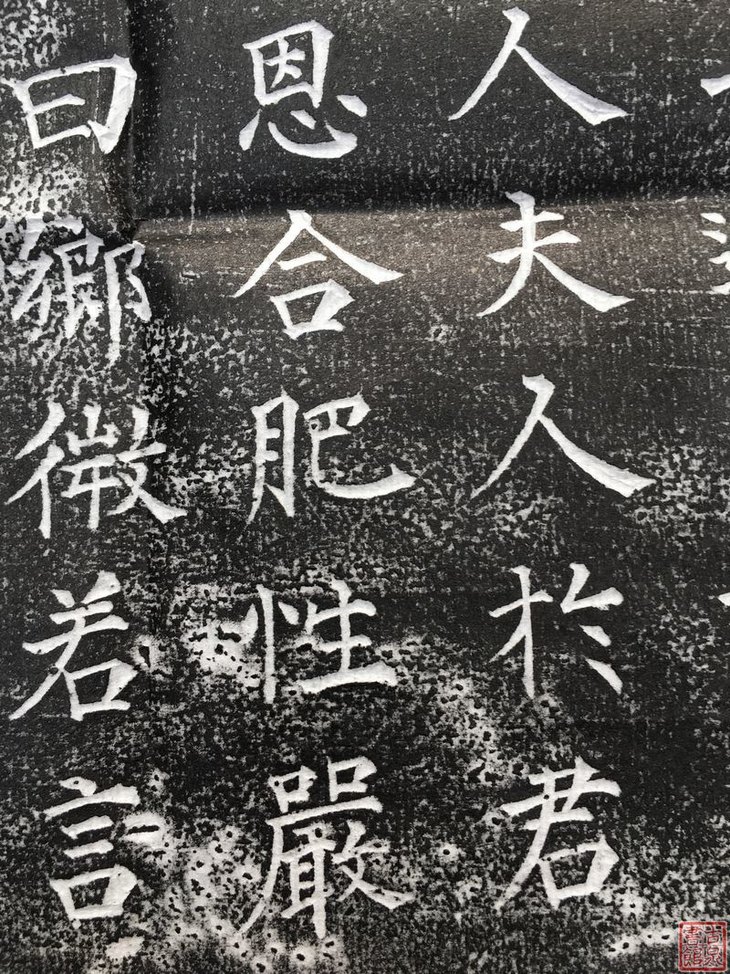 人夫人於君
恩合肥性嚴
曰鄉微若言